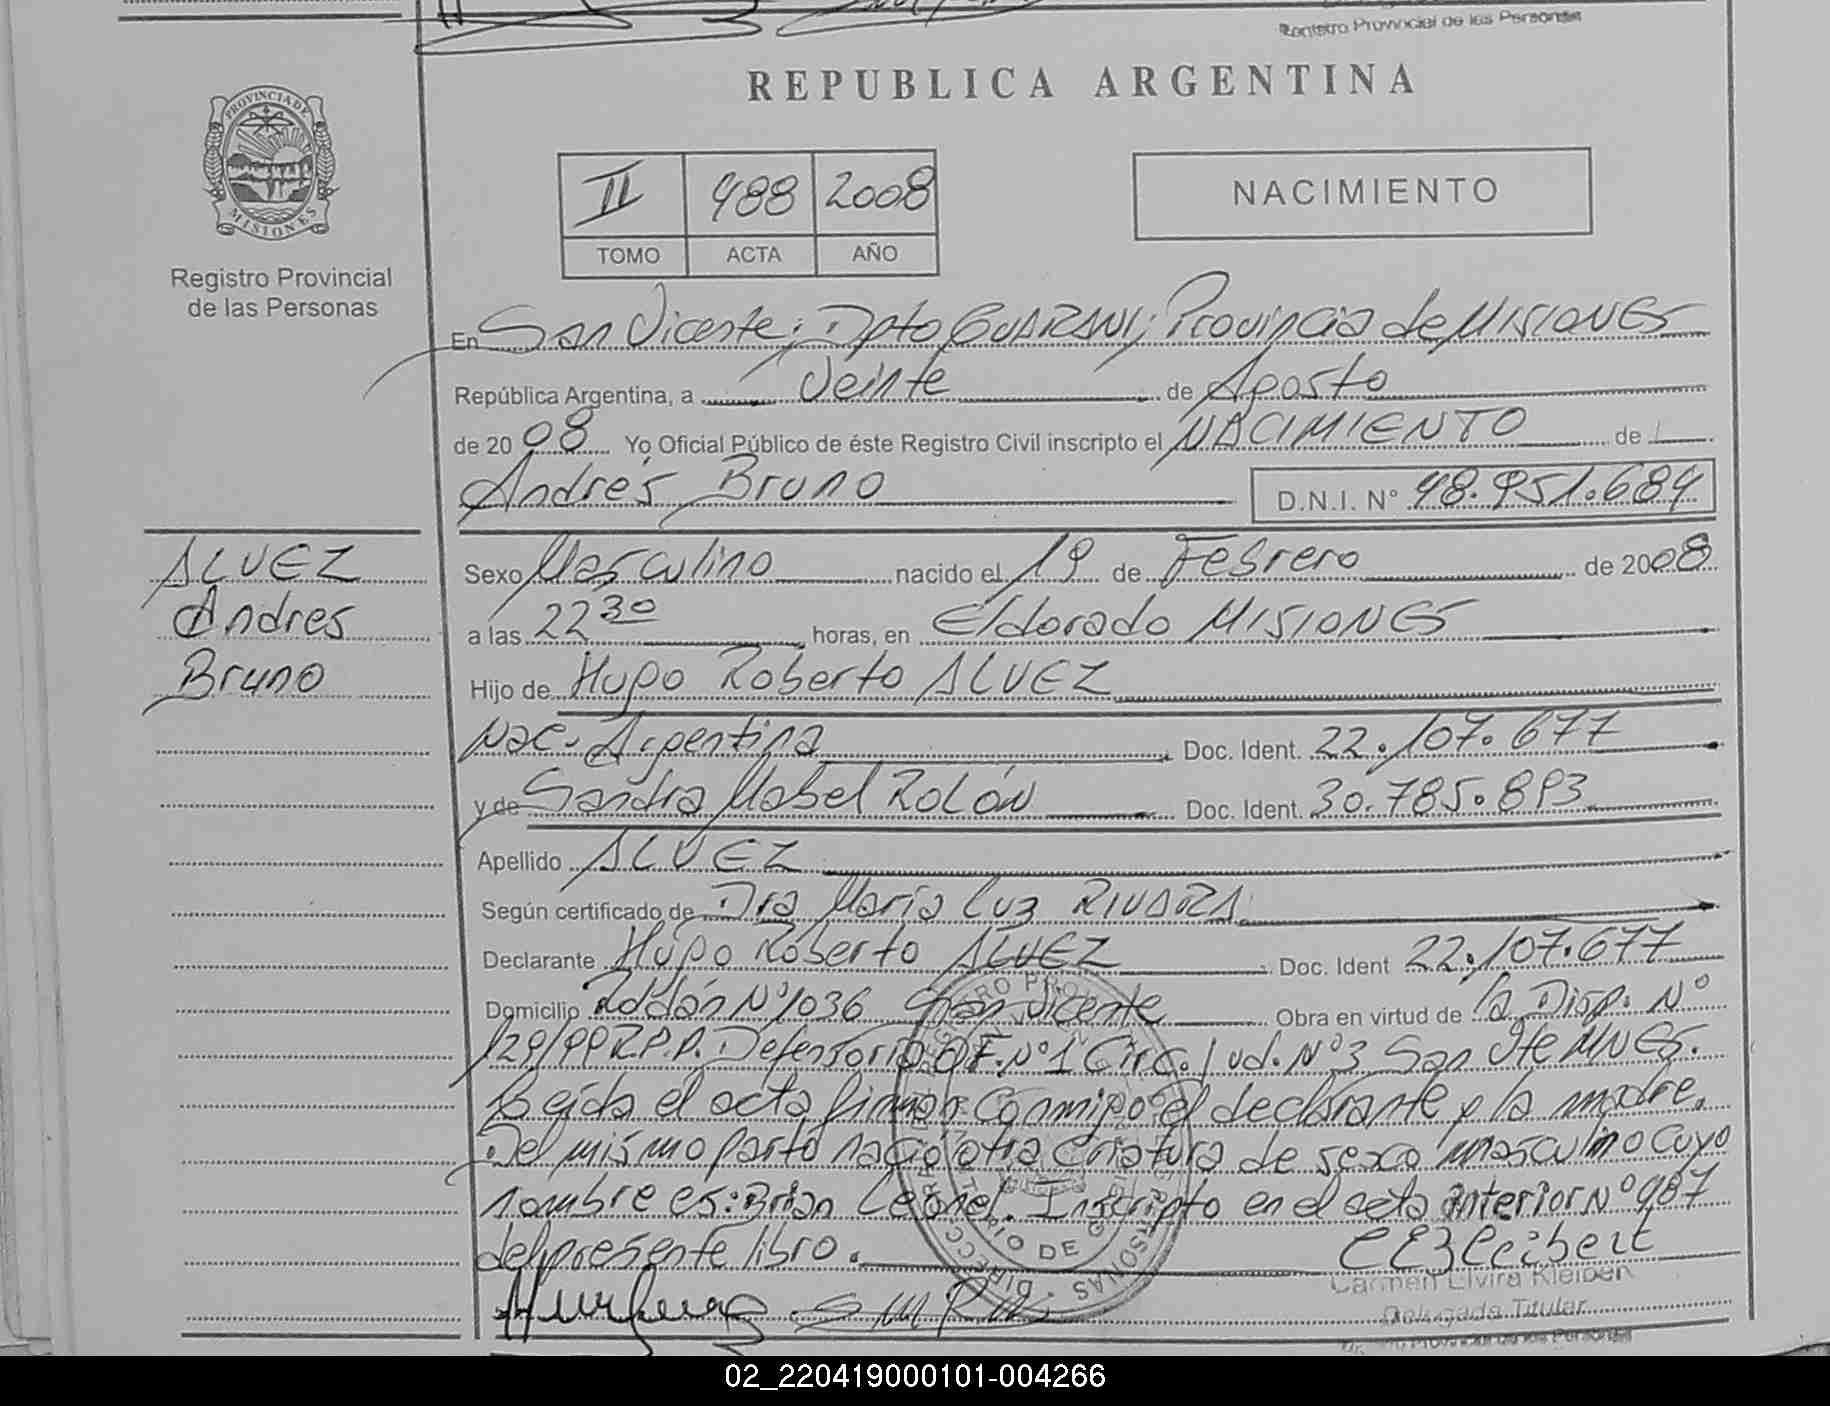 Registro Provincial de las Personas
REPUBLICA ARGENTINA
PROVINCIA DE
MISIONES
Registro Provincial
de las Personas
II 488 2008
TOMO ACTA AÑO
NACIMIENTO
En San Vicente; Dpto GUARANI; Provincia de MISIONES
República Argentina, a Veinte de Agosto
de 20 08 Yo Oficial Público de éste Registro Civil inscripto el NACIMIENTO de
Andrés Bruno D.N.I. N° 48.951.684
ALVEZ
Andres
Bruno
Sexo Masculino nacido el 19 de Febrero de 2008
a las 22 30 horas, en Eldorado MISIONES
Hijo de Hugo Roberto ALVEZ
Nac. Argentina Doc. Ident. 22.107.677
y de Sandra Mabel ROLÓN Doc. Ident. 30.785.893
Apellido ALVEZ
Según certificado de Dra María Luz RIVARA
Declarante Hugo Roberto ALVEZ Doc. Ident 22.107.677
Domicilio Roldán N° 1036 San Vicente Obra en virtud de la Disp. N°
129/99 R.P.P. Defensoría OF. N°1 Circ. Jud. N°3 San Vte MNES.
Leída el acta firman conmigo el declarante y la madre.
Del mismo parto nació otra criatura de sexo masculino cuyo
nombre es: Brian Leonel. Inscripto en el acta anterior N° 487
del presente libro.
Carmen Elvira Kleibert
Delegada Titular
Registro Provincial de las Personas
02_220419000101-004266